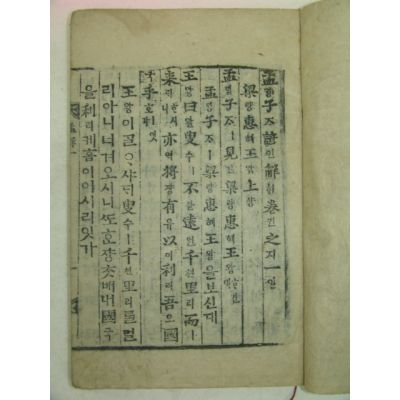 孟ᄆᆡᆼ子ᄌᆞ諺언解ᄒᆡ卷권之지一일
梁량惠혜王왕上샹
孟ᄆᆡᆼ子ᄌᆞㅣ見견梁량惠혜王왕
孟ᄆᆡᆼ子ᄌᆞㅣ梁량惠혜王왕을보신대
王왕曰왈叟수ㅣ不블遠원千쳔里리而이
來ᄅᆡ亦역將쟝有유以이利리吾오國국
乎호
王왕이ᄀᆞᆯᄋᆞ샤ᄃᆡ叟수ㅣ千쳔里리를멀
리아니너겨오시니ᄯᅩ호쟝ᄎᆞᆺᄡᅥ내國국
을利리케ᄒᆞᆷ이이시리잇가